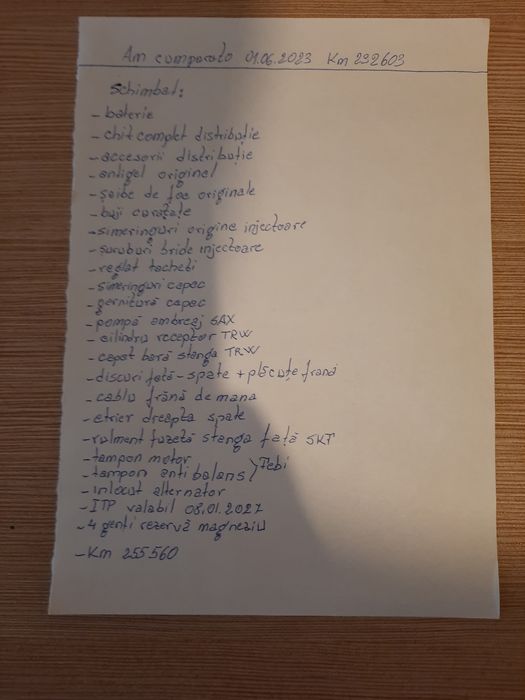 Am cumparato 01.06.2023 Km 232603
Schimbat:
- baterie
- chit complet distribuție
- accesorii distribuție
- antigel original
- șaibe de foc originale
- buji curățate
- simeringuri origine injectoare
- șuruburi bride injectoare
- reglat tacheți
- simeringuri capac
- garnitură capac
- pompă ambreaj SAX
- cilindru receptor TRW
- capat bară stanga TRW
- discuri față - spate + plăcuțe frână
- cablu frână de mana
- etrier dreapta spate
- rulment fuzetă stanga față SKF
- tampon motor
- tampon anti balans } Febi
- inlocuit alternator
- ITP valabil 08.01.2027
- 4 genti rezervă magneziu
- Km 255560